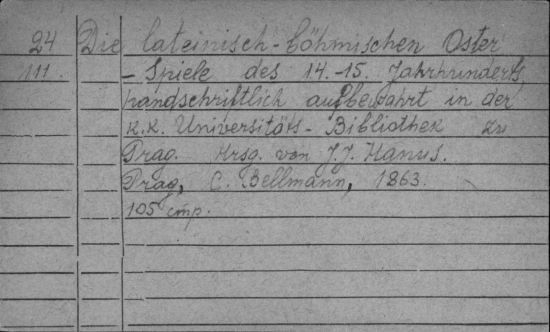 24 Die lateinisch-böhmischen Oster
111. - Spiele des 14.-15. Jahrhunderts,
handschriftlich aufbewahrt in der
K.K. Universitäts-Bibliothek zu
Prag. Hrsg. von J.J. Hanus.
Prag, C. Bellmann, 1863.
105 стр.